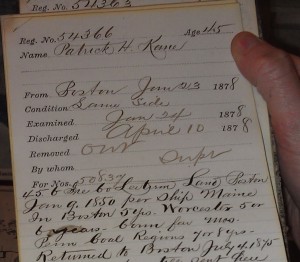 No. 54363
Reg. No. 54366 Age 45
Name Patrick H. Kane
From Boston Jan 23 1878
Condition Lame Side
Examined Jan 24 1878
Discharged April 10 1878
Removed Out
By whom Supt
For Nos. 50837
45 Co Leitrim Land Boston
Jan 9. 1850 per Ship Moine
In Boston 5 yrs. Worcester 5 or
6 years - Conn few mos.
Penn Coal Regions 7 or 8 yrs.
Returned to Boston July 4 1875
sent here